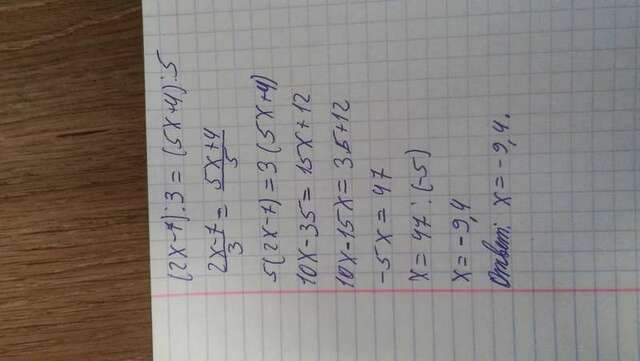 (2x-7):3 = (5x+4):5
2x-7/3 = 5x+4/5
5(2x-7)=3(5x+4)
10x-35=15x+12
10x-15x=35+12
-5x=47
x=47:(-5)
x=-9,4
Ответ: x=-9,4.